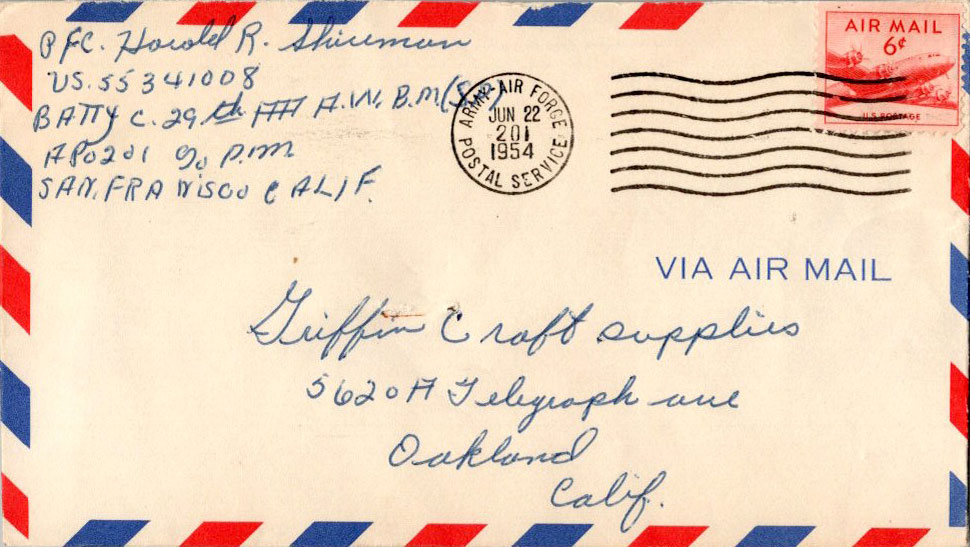 PFC. Harold R. Shireman
US. 55341008
BATTY C. 29th AAA A.W. B.M (SP)
APO 201 % P.M
SAN, FRANSISCO CALIF.
ARMY-AIR FORCE
JUN 22
201
1954
POSTAL SERVICE
AIR MAIL
6¢
U.S. POSTAGE
VIA AIR MAIL
Griffin Craft supplies
5620A Telegraph ave
Oakland
Calif.